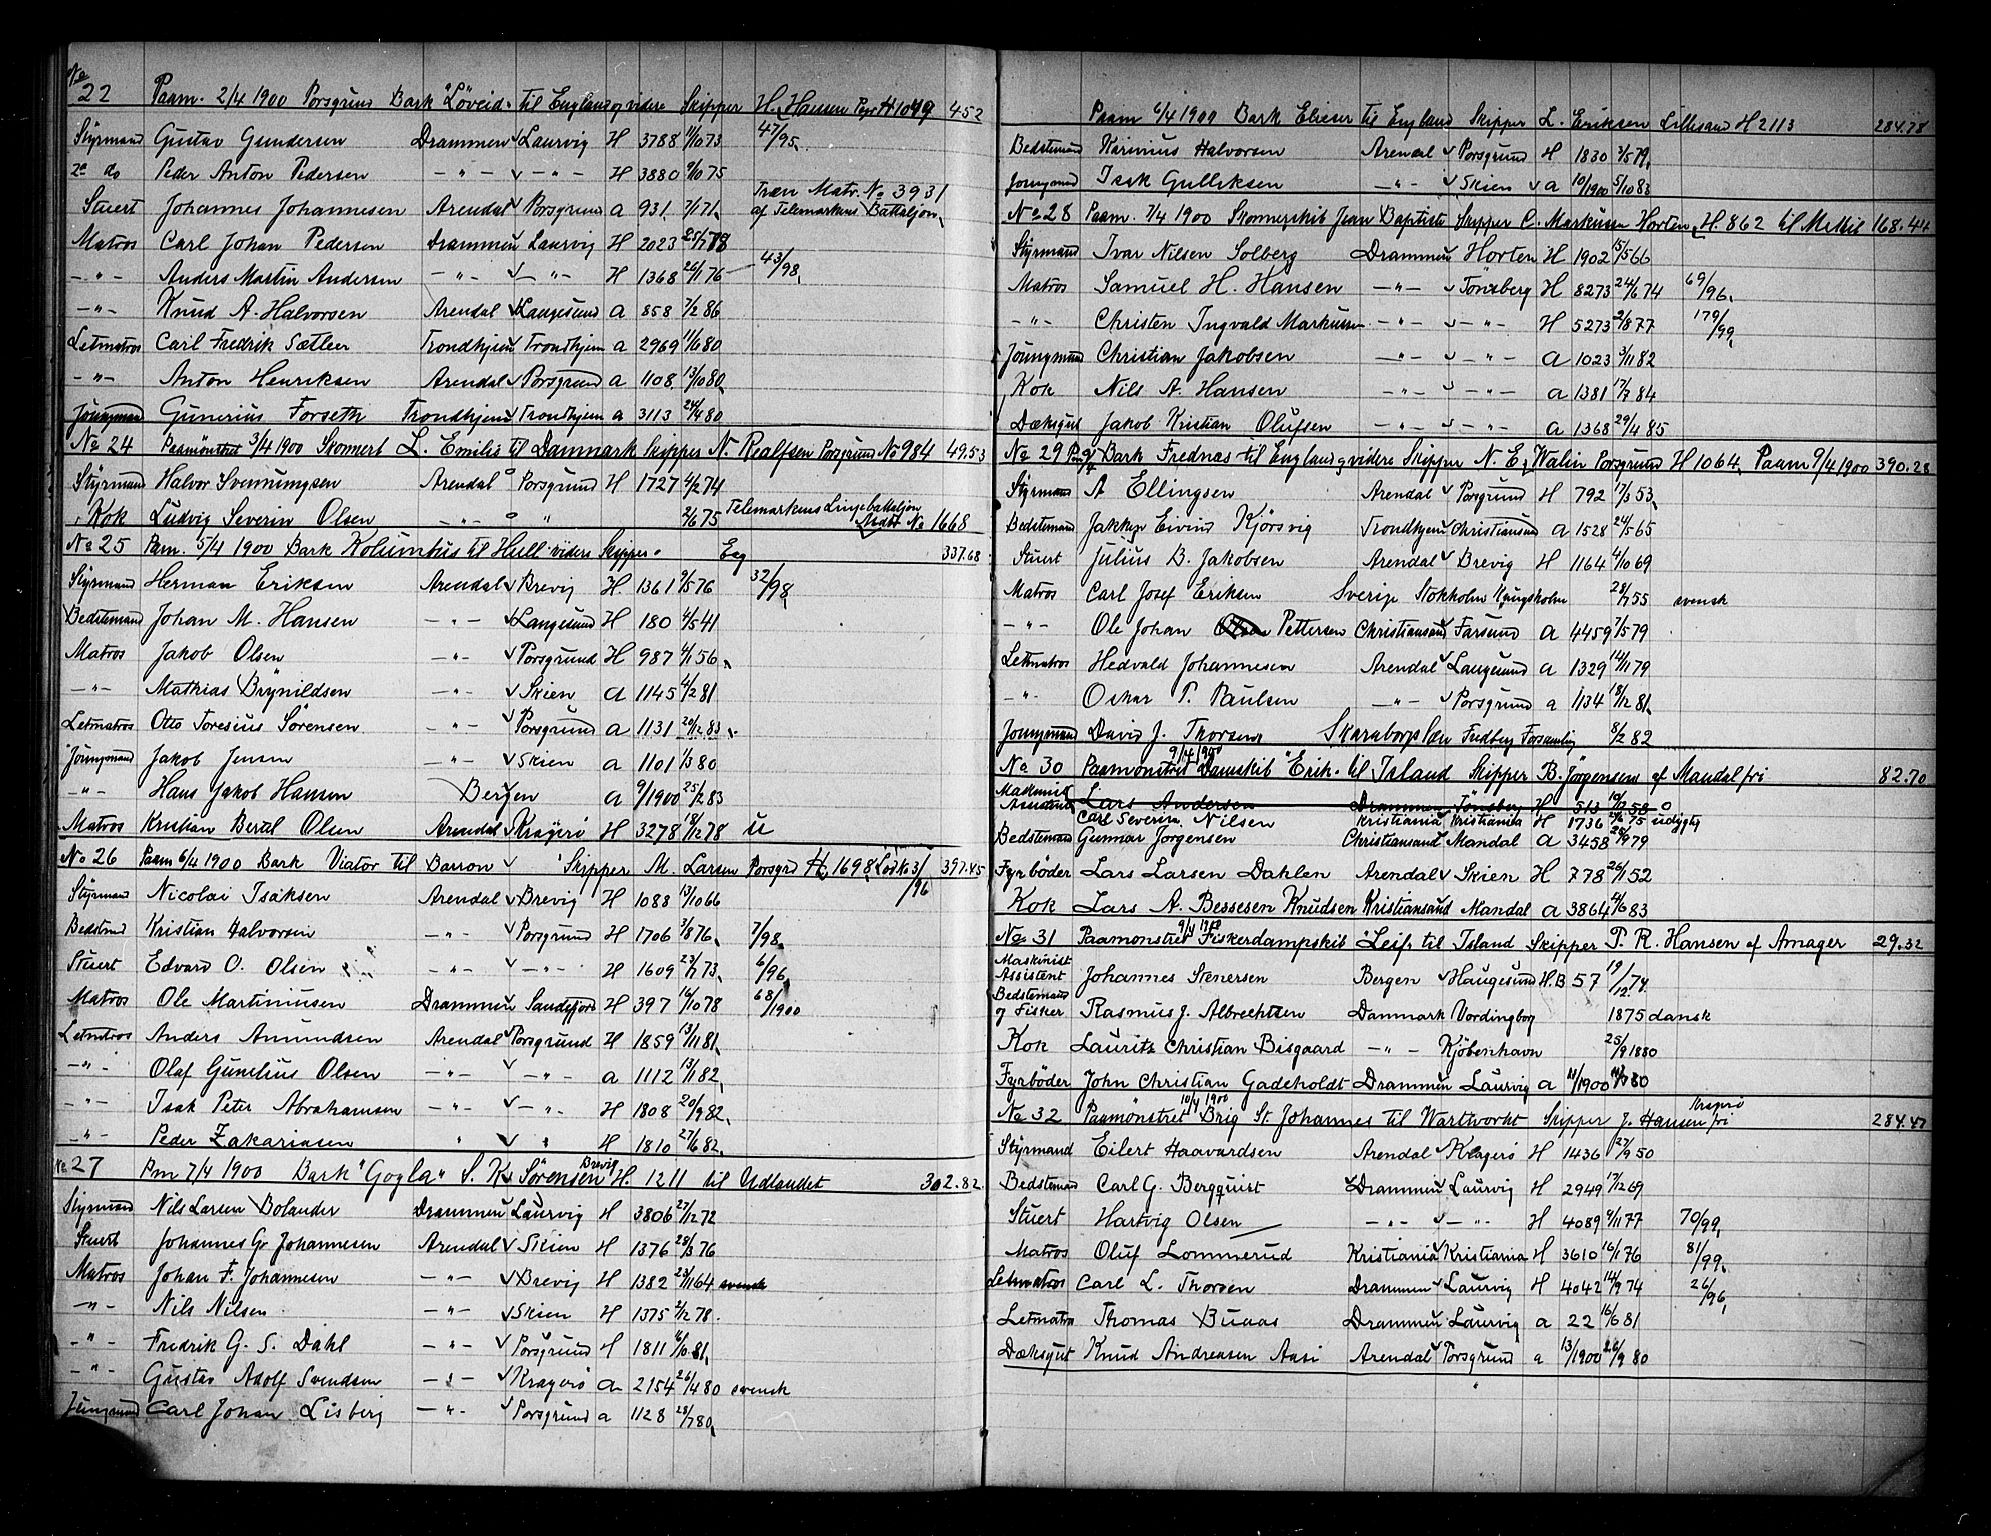 No
22 Paam. 2/4 1900 Porsgrund Bark "Löveid" til England og videre Skipper H. Hansen Pgr H 1049 452
Styrmand Gustav Gundersen Drammen v Laurvig H 3788 11/10 73 47/95
2e do Peder Anton Pedersen - " - v - " - H 3880 9/10 75
Stuert Johannes Johannesen Arendal v Porsgrund a 931 7/1 71 Træn Matr. No 3931 af Telemarkens Battaljon
Matros Carl Johan Pedersen Drammen v Laurvig H 2023 25/7 78
- " - Anders Martin Andersen - " - v - " - H 1368 26/1 76 - 43/98
- " - Knud A. Halvorsen Arendal v Langesund a 858 7/2 86
Letmatros Carl Fredrik Sætler Trondhjem v Trondhjem a 2969 11/6 80
- " - Anton Henriksen Arendal v Porsgrund a 1108 13/10 80
Joungmand Gunerius Forseth Trondhjem v Trondhjem a 3113 24/4 80
No 24 Paamönstret 3/4 1900 Skonnert L. Emilie til Danmark Skipper N. Realfsen Porsgrund No 984 49.53
Styrmand Halvor Svennungsen Arendal o Porsgrund H 1727 4/2 74
Kok Ludvig Severin Olsen - " - o " 2/6 75 Telemarkens Linjebattaljon No 1668
No 25 Paam. 5/4 1900 Bark Kolumbus til Hull videre Skipper Eeg 337.68
Styrmand Herman Eriksen Arendal v Brevig H. 1361 9/5 76 32/98
Bedstemand Johan M. Hansen - " - v Langesund H 180 4/5 41
Matros Jakob Olsen - " - v Porsgrund H 987 4/1 56
- " - Mathias Brynildsen - " - v Skien a 1145 4/2 81
Letmatros Otto Toresius Sörensen - " - v Porsgrund a 1131 20/12 83
Joungmand Jakob Jensen - " - v Skien a 1101 1/3 80
- " - Hans Jakob Hansen Bergen a 9/1900 25/12 83
Matros Kristian Bertel Olsen Arendal v Kragerö H 3278 18/12 78 u
No 26 Paam 6/4 1900 Bark Viator til Barron v Skipper M. Larsen Porsgrd H. 1698 3/96 397.45
Styrmand Nicolai Isaksen Arendal v Brevig H 1088 13/10 66
Bedstmd Kristian Halvorsen - " - v Porsgrund H 1706 3/8 76 7/98
Stuert Edvard O. Olsen - " - v - " - H 1609 23/7 73 6/96
Matros Ole Martiniusen Drammen v Sandefjord H 397 16/10 78 68/1900
Letmatros Anders Amundsen Arendal v Porsgrund H 1859 13/11 81
- " - Olaf Gunelius Olsen - " - v - " - a 1112 13/1 82
- " - Isak Peter Abrahamsen - " - v - " - H 1808 20/9 82
- " - Peder Zakariasen " v " H 1810 27/6 82
No 27 Pm 7/4 1900 Bark "Gogla" S. K. Sörensen Brevig H. 1211 til Udlandet 302.82
Styrmand Nils Larsen Bolander Drammen v Laurvig H 3806 27/12 72
Stuert Johannes Gr Johannesen Arendal v Skien H 1376 28/3 76
Matros Johan F. Johannesen - " - v Brevig H 1382 23/11 64 svensk
- " - Nils Nilsen - " - v Skien H 1375 2/12 78
- " - Fredrik G. S. Dahl - " - v Porsgrund H 1811 16/6 81
- " - Gustav Adolf Svendsen - " - v Kragerö a 2154 26/4 80 svensk
Jungmand Carl Johan Lisberg - " - v Porsgrund a 1128 28/7 80
Paam 6/4 1900 Bark Elieser til England Skipper L. Eriksen Lillesand H 2113 284.78
Bedstemand Karinius Halvorsen Arendal v Porsgrund H 1830 3/5 79
Joungmand Isak Gulliksen - " - v Skien v a 10/1900 5/10 83
No 28 Paam. 7/4 1900 Skonnerskib Jean Baptiste Skipper C. Markussen Horten H. 862 til Methil 168.44
Styrmand Ivar Nilsen Solberg Drammen Horten H 1902 15/5 66
Matros Samuel H. Hansen - " - v Tönsberg H 8273 24/6 74 69/96
- " - Christen Ingvald Markussen - " - v - " - H 5273 2/8 77 179/99
Joungmand Christian Jakobsen - " - v - " - a 1023 3/11 82
Kok Nils A. Hansen " v - " - a 1381 17/7 84
Dæksgut Jakob Kristian Olufsen - " - v - " - a 1368 29/4 85
No 29 Pm 9/4 Bark Frednæs til England og videre Skipper N. E. Walin Porsgrund H 1064 Paam 9/4 1900 390.28
Styrmand A Ellingsen Arendal v Porsgrund H 792 17/3 53
Bedstemand Jakken Eivind Kjörsvig Trondhjem Christiansund a 1528 24/5 65
Stuert Julius B. Jakobsen Arendal v Brevig H 1164 4/10 69
Matros Carl Josef Eriksen Sverige Stokholm Kungsholm 28/7 55 svensk
- " - Ole Johan Pettersen Christiansand Farsund a 4459 7/5 79
Letmatros Hedvald Johannesen Arendal v Langesund a 1329 14/11 79
- " - Oskar T. Paulsen - " - v Porsgrund a 1134 18/12 81
Joungmand David J. Thorsen Skaraborgslæn Fredberg Forsamling 8/2 82
No 30 Paamönstret 9/4 1900 Damskib "Erik" til Island Skipper B. Jörgensen af Mandal fri 82.70
Maskinist Assistent Lars Andersen Drammen Tönsberg H 513 10/2 58 o
Carl Severin Nilsen Kristiania Kristiania H 1736 24/2 75 udygtg
Bedstemand Gunnar Jorgensen Christiansand Mandal a 3458 25/9 79
Fyrböder Lars Larsen Dahlen Arendal v Skien H 778 26/1 52
Kok Lars A. Bessesen Knudsen Kristiansand Mandal a 3864 4/6 83
No 31 Paamönstret 9/4 1900 Fiskerdampskib "Leif" til Island Skipper P. R. Hansen af Amager 29.32
Maskinist Assistent Johannes Stenersen Bergen v Haugesund H.B 57 19/12 74
Bedstemand og Fisker Rasmus J. Albrechtsen Danmark Vordingborg 1875 dansk
Kok Laurits Christian Bisgaard - " - Kjöbenhavn 25/9 1880
Fyrböder John Christian Gadeholdt Drammen Laurvig a 11/1900 14/7 80
No 32 Paamönstret 10/4 1900 Brig St. Johannes til Wartworht Skipper J. Hansen fri 284.47
Styrmand Eilert Haavardsen Arendal v Kragerö H 1436 27/9 50
Bedstemand Carl G. Bergquist v Drammen Laurvig H 2949 17/12 69
Stuert Hartvig Olsen - " - v - " - H 4089 9/11 77 70/99
Matros Oluf Lommerud Kristiania v Kristiania H 3610 16/1 76 81/99
Letmatros Carl L. Thorsen Drammen v Laurvig H 4042 14/9 74 26/96
Letmatros Thomas Buaas Drammen Laurvig a 22 16/6 81
Dæksgut Knud Andreasen Aasi Arendal v Porsgrund a 13/1900 26/9 80